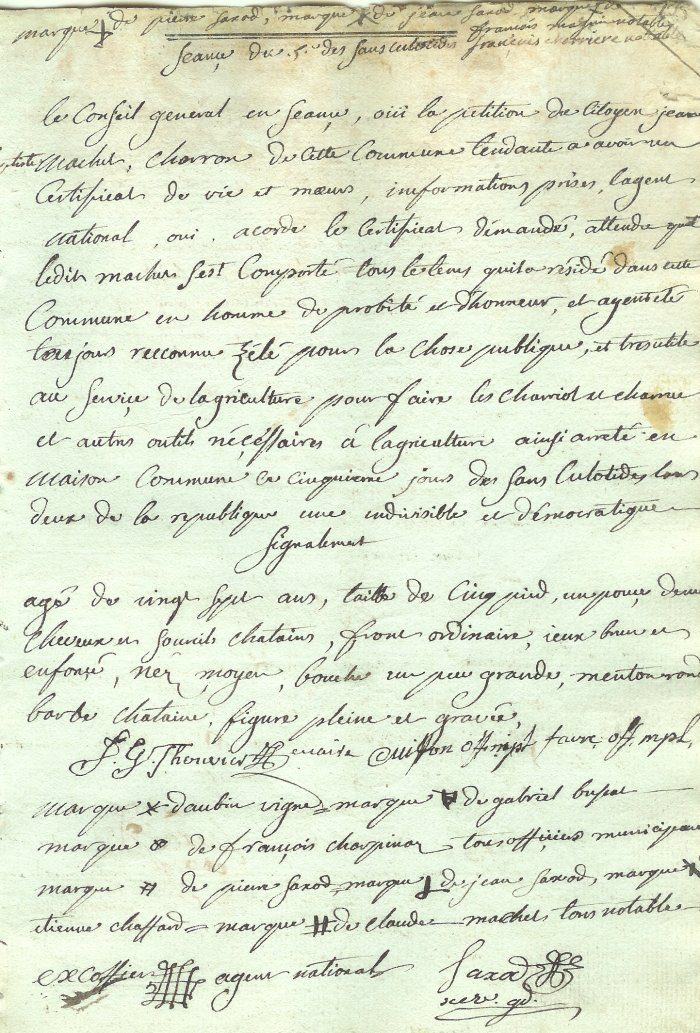 marque de pierre saxod, marque de jean saxod marque de
françois magnin notable
françois verriere notable
Seance du 5e des Sans culotides
le Conseil general en seance, oüi la petition du Citoyen jean
Machet, Charron de cette Commune tendante a avoir un
Certificat de vie et mœurs, imformations prises, l'agent
national, oui, acorde le Certificat démandé, attendu que
ledit machet s'est Comporté tous le tems quil a résidé dans cette
Commune en homme de probité et d'honneur, et ayent été
toujours reconnu zélé pour la chose publique, et tres utile
au service de lagriculture pour faire les charriot et charrue
et autres outils néçéssaires à lagriculture ainsi arreté en
maison Commune ce Cinquieme jours des sans Culotides lans
deux de la republique une indivisible et démocratique
signalement
agé de vingt sept ans, taille de Cinq pied, un pouçe demi
cheveux et sourcils chatains, front ordinaire, ieux brun et
enfonsé, néz moyen, bouche un peu grande, menton rond
barbe chataine, figure pleine et gravée,
Thouvier maire off. mpl favre off. mpl,
marque daubin vigne = marque de gabriel
marque de françois charpinaz tous officiers municipeaux
marque de pierre saxod = marque de jean saxod, marque
etienne chaffard = marque de claude machet tous notable
excoffier agent national Saxod
secr. gd.